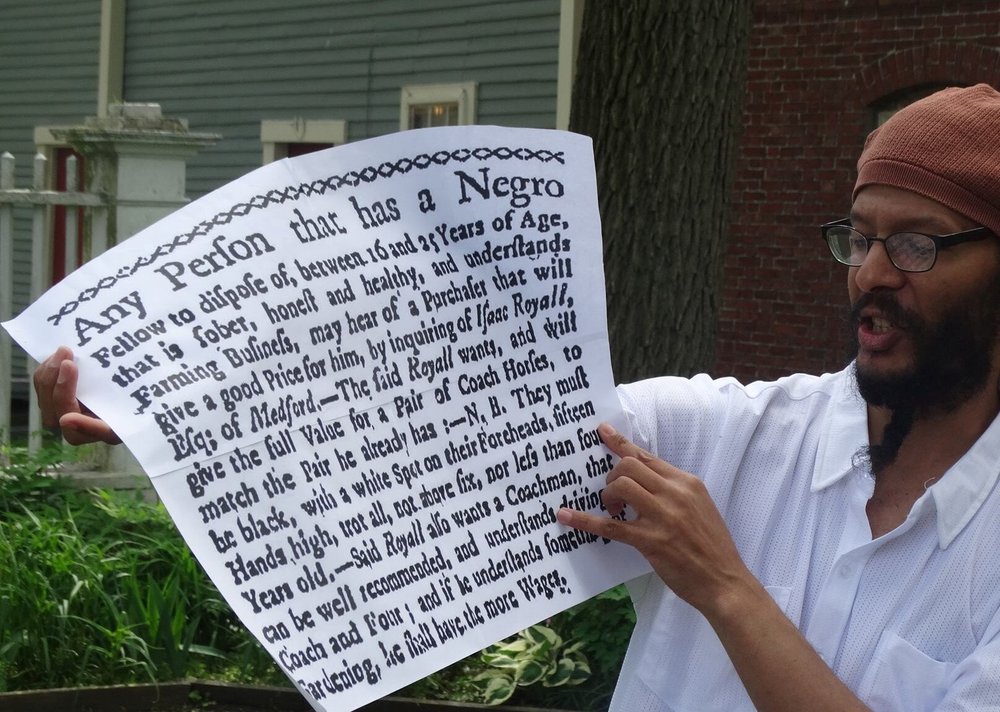 Any Perſon that has a Negro
Fellow to diſpoſe of, between 16 and 25 Years of Age,
that is ſober, honeſt and healthy, and underſtands
Farming Buſineſs, may hear of a Purchaſer that will
give a good Price for him, by inquiring of Iſaac Royall,
Eſq; of Medford.—The ſaid Royall wants, and will
give the full Value for a Pair of Coach Horſes, to
match the Pair he already has :—N. B. They muſt
be black, with a white Spot on their Foreheads, fifteen
Hands high, trot all, not more ſix, nor leſs than four
Years old.—Said Royall alſo wants a Coachman, that
can be well recommended, and underſtands driving
Coach and Four ; and if he underſtands ſomething
Gardening, he ſhall have the more Wages.